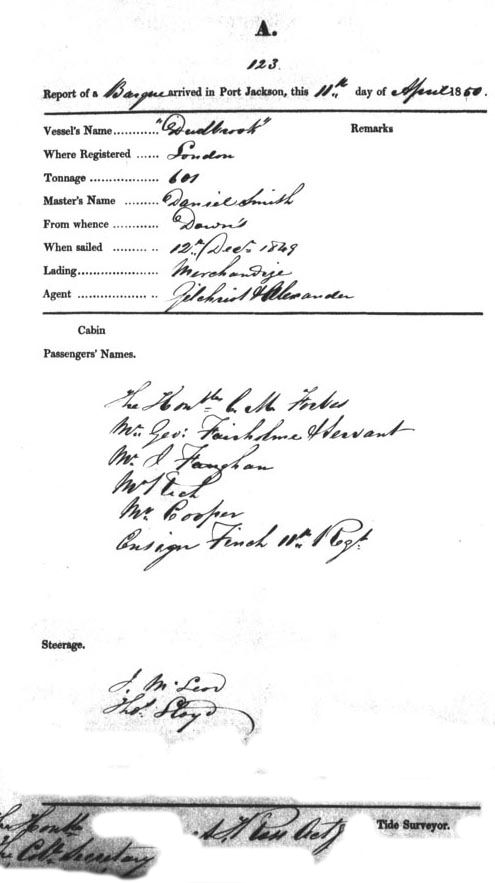 A.
123
Report of a Barque arrived in Port Jackson, this 11th day of April 1850.
Vessel's Name............ "Dudbrook" Remarks
Where Registered ...... London
Tonnage .................. 601
Master's Name ......... Daniel Smith
From whence ......... Down's
When sailed ......... .. 12th Decr 1849
Lading..................... Merchandize
Agent ................... .. Gilchrist & Alexander
Cabin
Passengers' Names.
The Honble C. M. Forbes
Mr. Geo: Fairholme & Servant
Mr. J Faughan
Mr
Mr. Cooper
Ensign Finch 11th Regt.
Steerage.
J. McLeod
Thos. Lloyd
The Honble
The Coll. Secretary Actg Tide Surveyor.